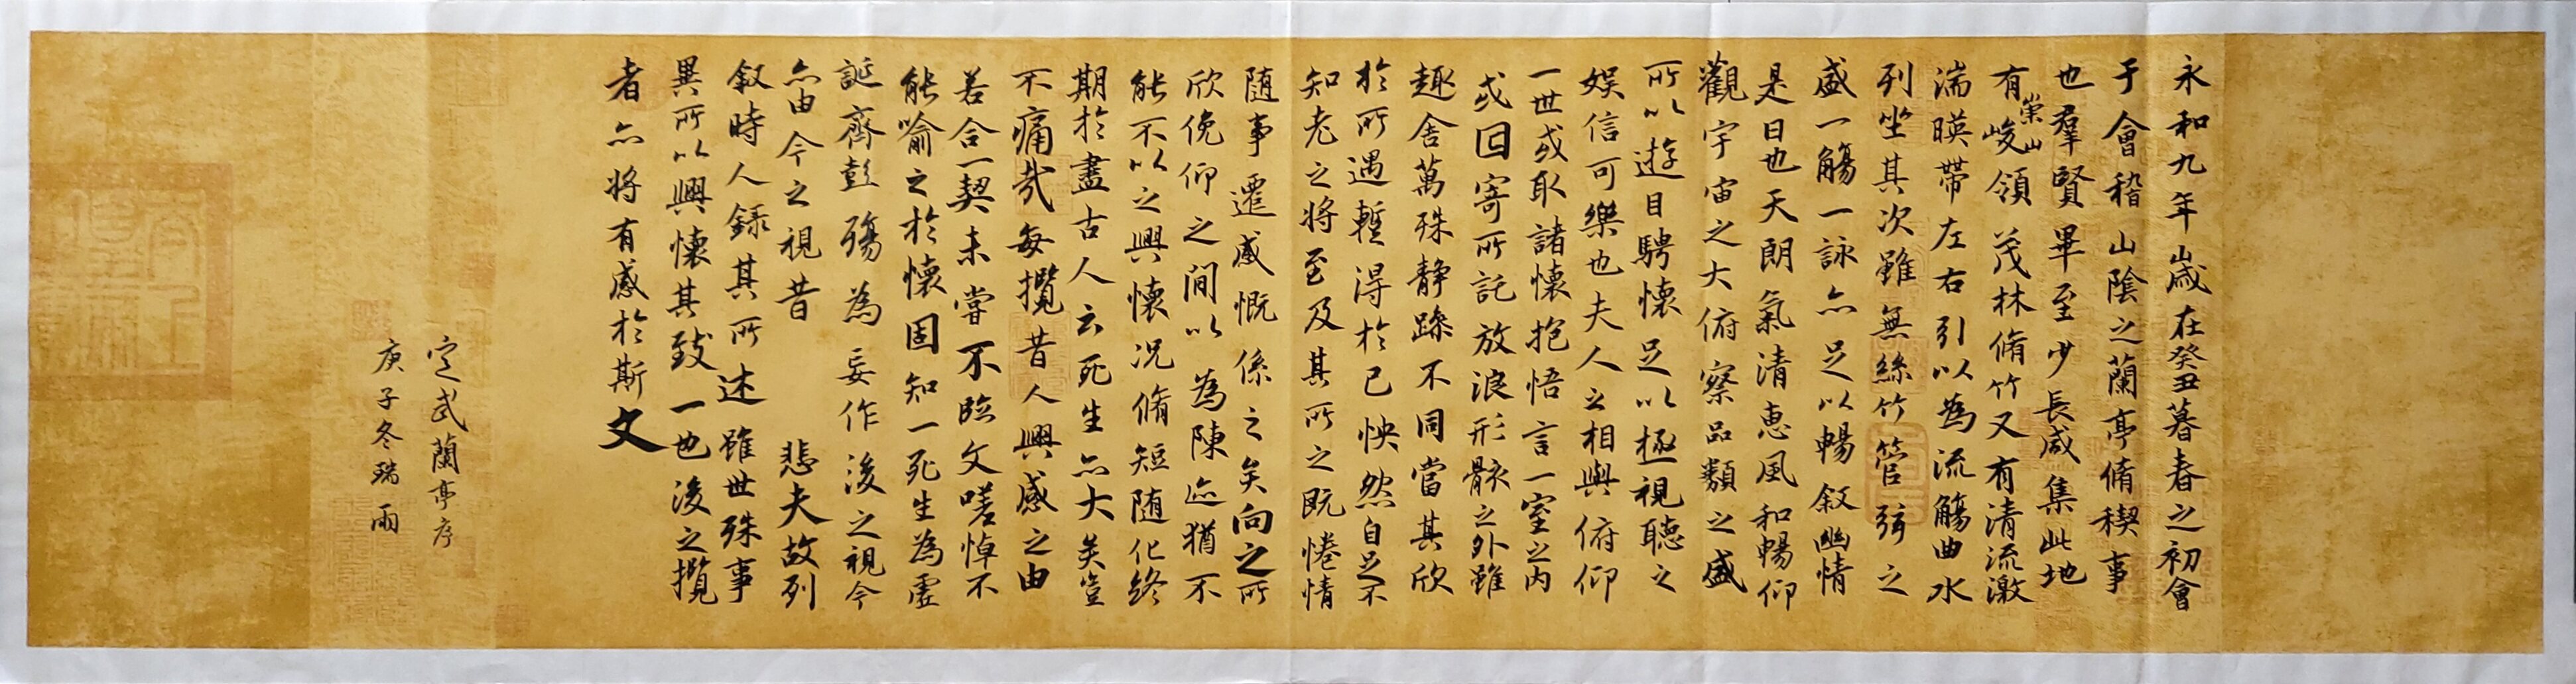 永和九年歲在癸丑暮春之初會
于會稽山陰之蘭亭脩稧事
也羣賢畢至少長咸集此地
有崇山峻領茂林脩竹又有清流激
湍暎帶左右引以為流觴曲水
列坐其次雖無絲竹管弦之
盛一觴一詠亦足以暢敘幽情
是日也天朗氣清恵風和暢仰
觀宇宙之大俯察品類之盛
所以遊目騁懷足以極視聽之
娛信可樂也夫人之相與俯仰
一世或取諸懷抱悟言一室之內
或因寄所託放浪形骸之外雖
趣舍萬殊静躁不同當其欣
於所遇蹔得於己怏然自足不
知老之將至及其所之既惓情
随事遷感慨係之矣向之所
欣俛仰之間以為陳迹猶不
能不以之興懷況脩短随化終
期於盡古人云死生亦大矣豈
不痛哉每攬昔人興感之由
若合一契未嘗不臨文嗟悼不
能喻之於懷固知一死生為虛
誕齊彭殤為妄作後之視今
亦由今之視昔悲夫故列
敘時人錄其所述雖世殊事
異所以興懷其致一也後之攬
者亦將有感於斯文
定武蘭亭序
庚子冬瑞雨